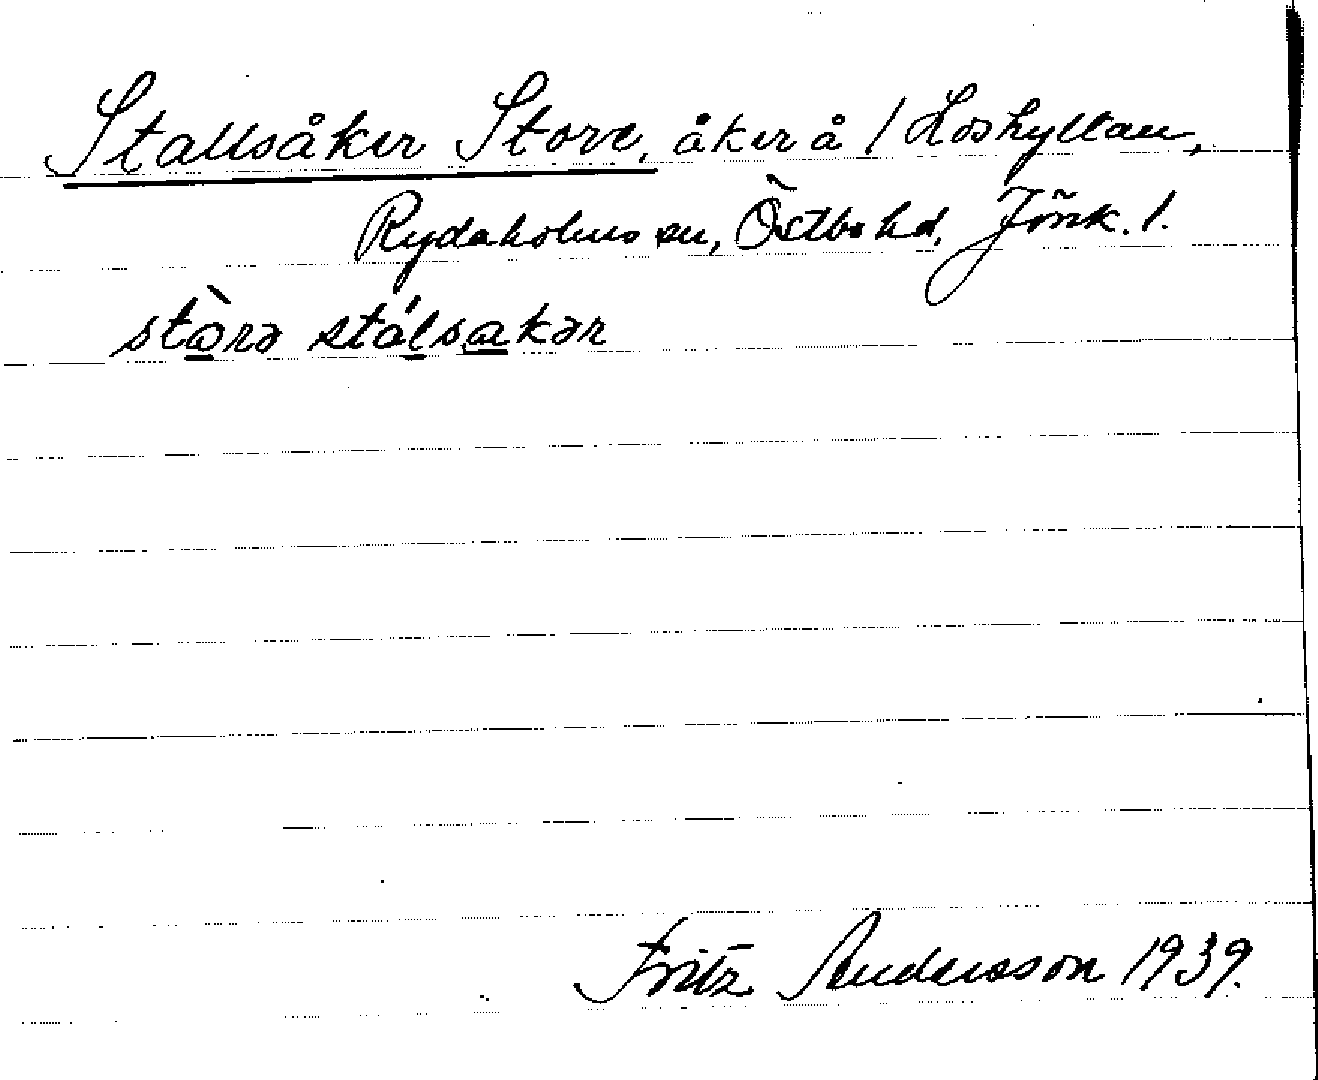 Stallsåker Store, åker å 1 Loshyltan,
Rydaholms sn, Östbo hd, Jönk. l.
stòrə stálsakər
Fritz Andersson 1939.